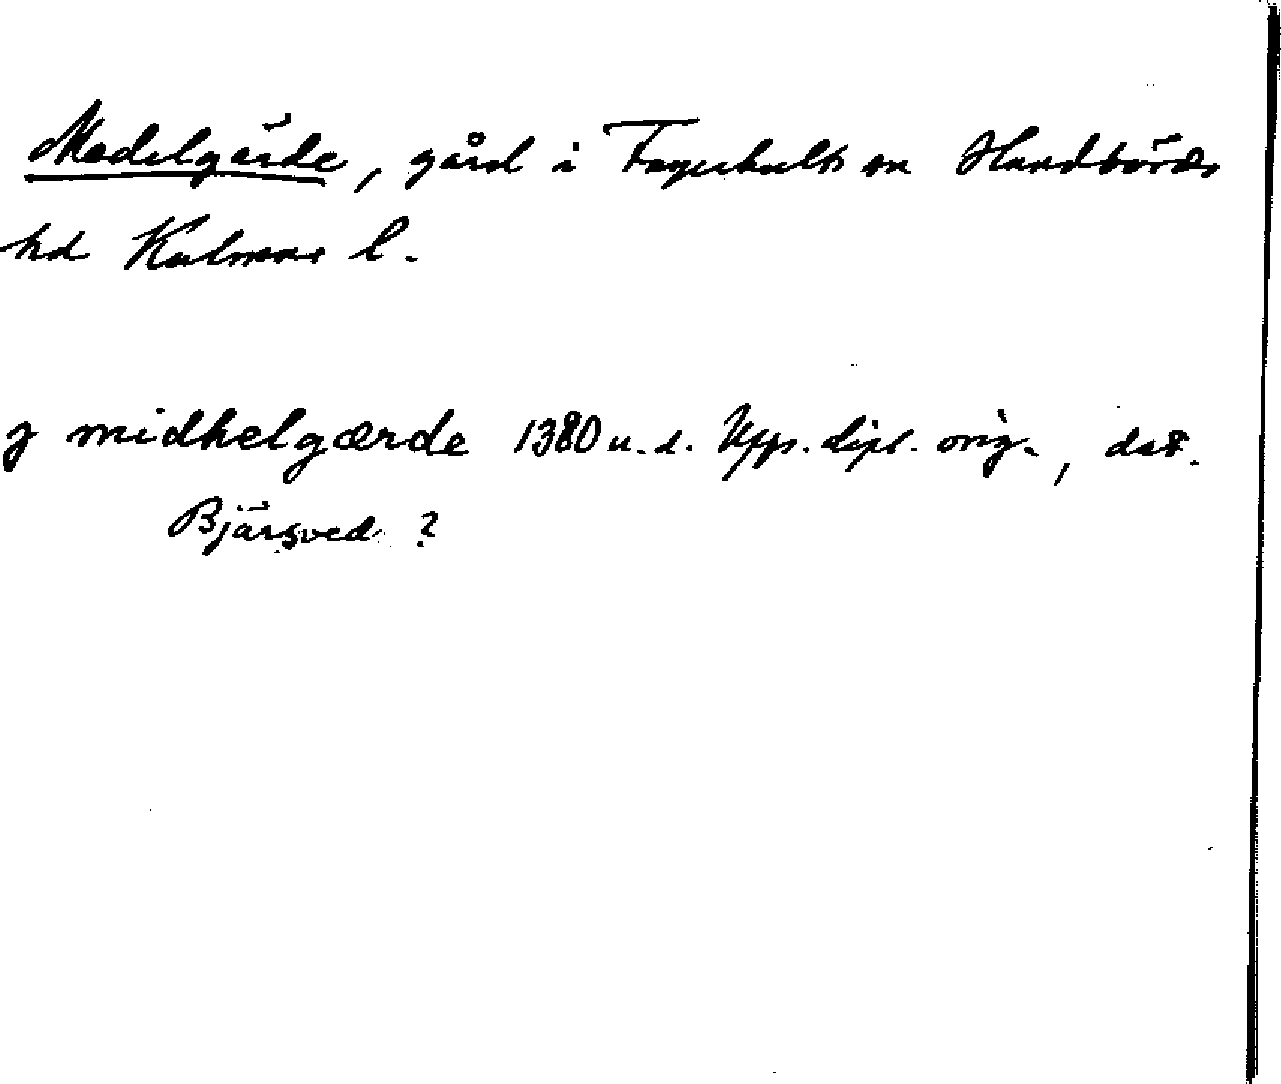 Medelgärde, gård i Fagerhults sn Handbörds
hd Kalmar l.
j midhelgærde 1380 u. d. Upps. dipl. orig., dat.
Bjärsved ?